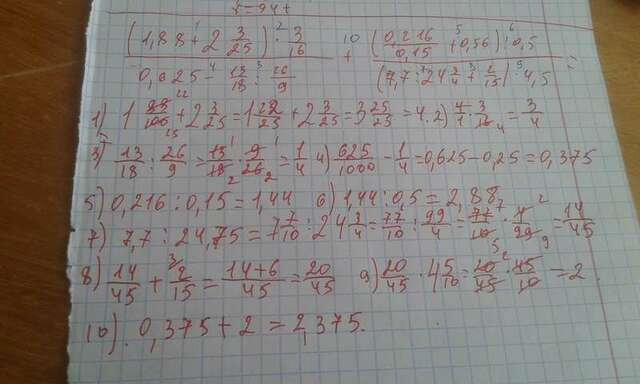 5=94t
(1,88+2 3/25) · 3/16 / 0,625 - 13/18 : 26/9 + (0,216/0,15 + 0,56) : 0,5 / (7,7 : 24 3/4 + 2/15) · 4,5 =
1) 1 88/100 + 2 3/25 = 1 22/25 + 2 3/25 = 3 25/25 = 4. 2) 4/1 · 3/16 = 3/4
3) 13/18 : 26/9 = 13/18 · 9/26 = 1/4 4) 625/1000 - 1/4 = 0,625 - 0,25 = 0,375
5) 0,216 : 0,15 = 1,44 6) 1,44 : 0,5 = 2,88
7) 7,7 : 24,75 = 7 7/10 : 24 3/4 = 77/10 : 99/4 = 77/10 · 4/99 = 14/45
8) 14/45 + 2/15 = 14+6/45 = 20/45 9) 20/45 · 4 5/10 = 20/45 · 45/10 = 2.
10). 0,375 + 2 = 2,375.